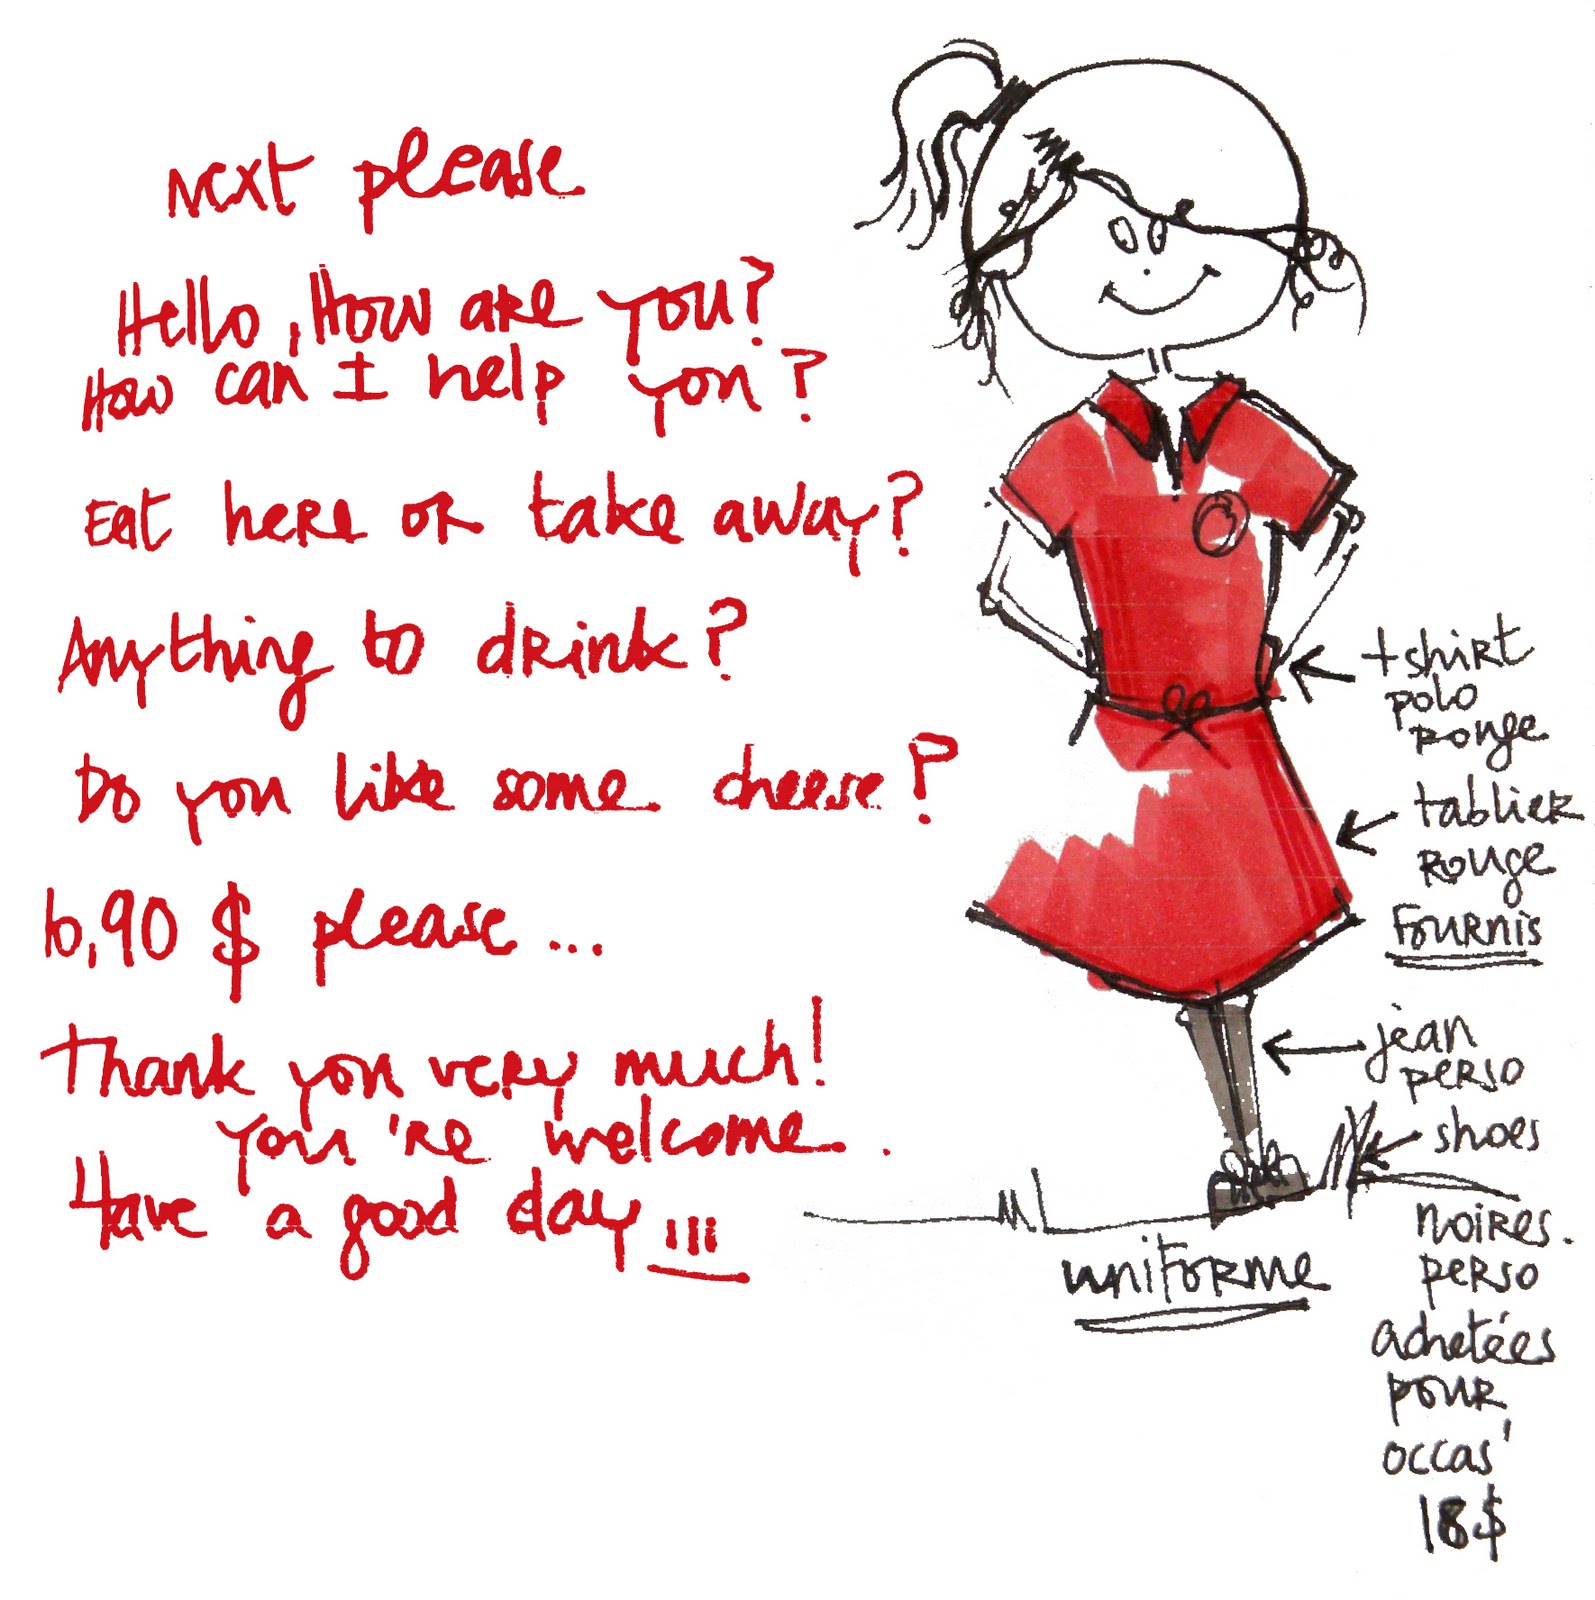 Next please
Hello, How are you?
How can I help you?
Eat here or take away?
Anything to drink?
Do you like some cheese?
10,90 $ please...
Thank you very much!
you're welcome.
Have a good day !!!
tshirt
polo
rouge
tablier
rouge
fournis
jean
perso
shoes
noires.
perso
achetées
pour
occas'
18$
uniforme